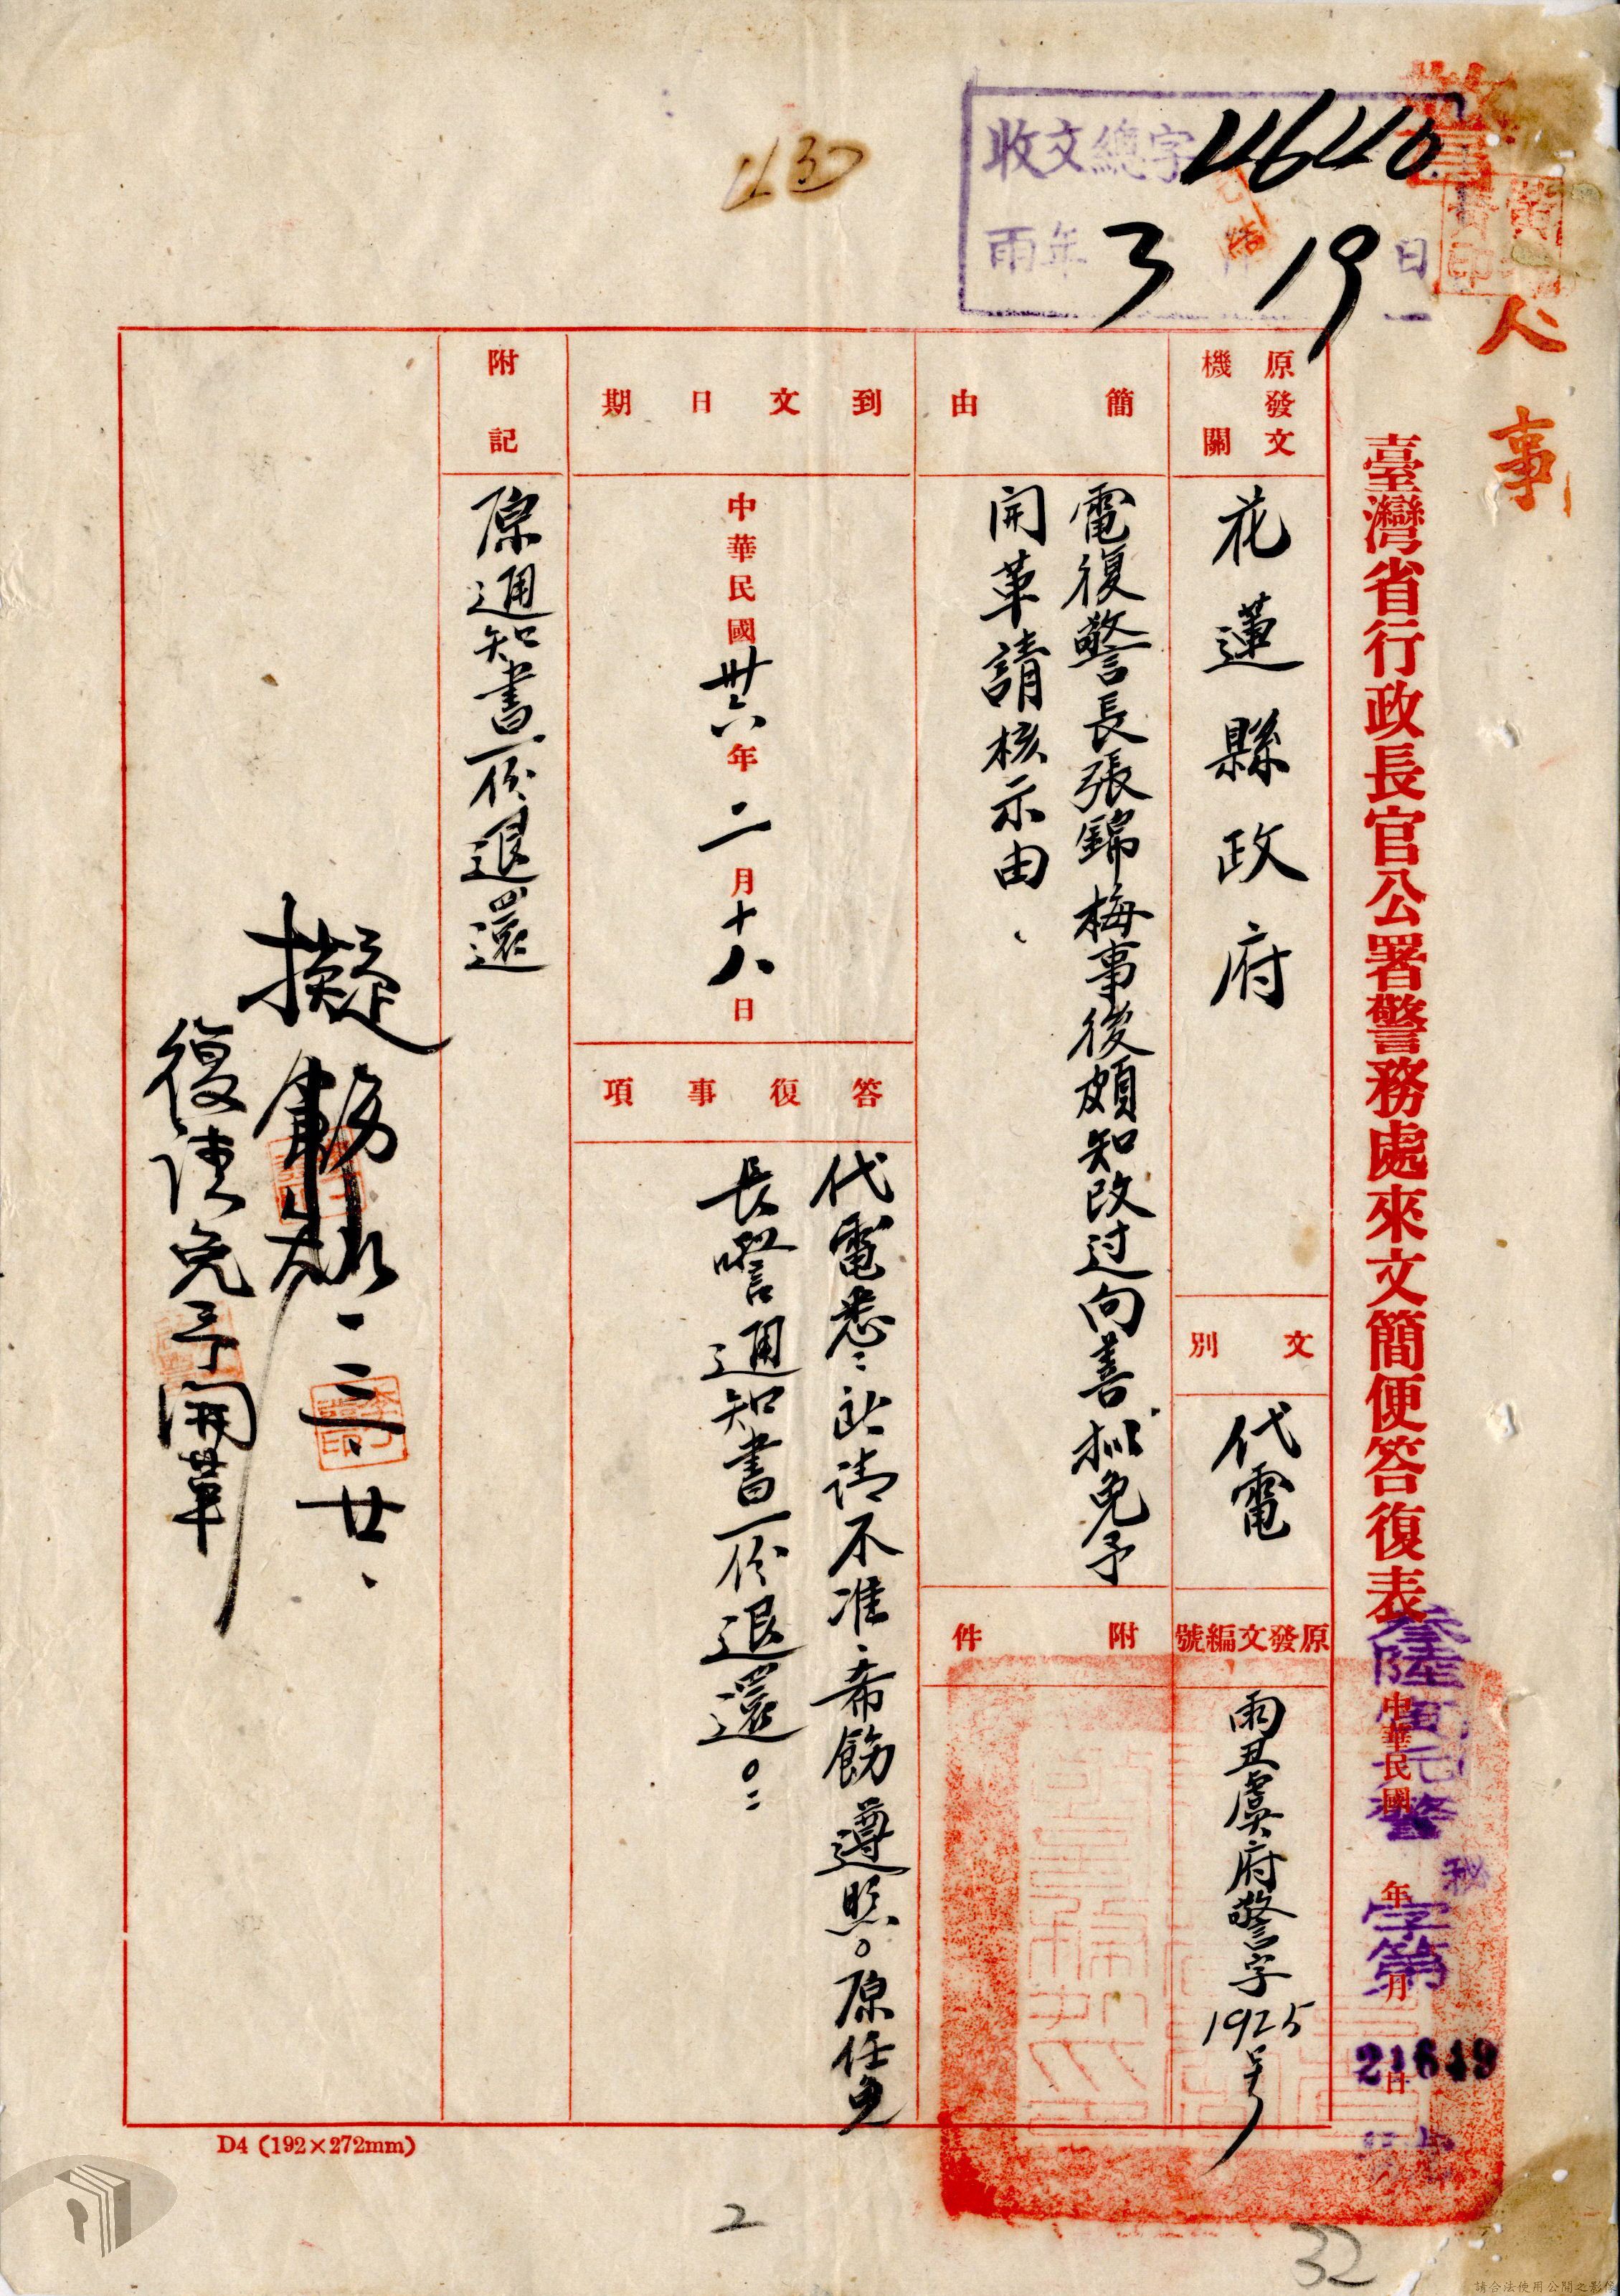 收文總字 4640
雨年 3 19 日
人事
臺灣省行政長官公署警務處來文簡便答復表
中華民國 年 月 日
參陸寅元警秘字第21649號
原發文機關
花蓮縣政府
文別
代電
原發文編號
雨丑虞府警字1925号
簡由
電復警長張錦梅事後頗知改过向善拟免予
開革請核示由、
附件
到文日期
中華民國卅六年二月十八日
答復事項
代電悉:所請不准、希飭遵照。原任免
長警通知書一份退還。
附記
原通知書一份退還
擬飭
三、廿、
復請免予開革
D4 (192×272mm)
2
32
請合法使用公開之影像